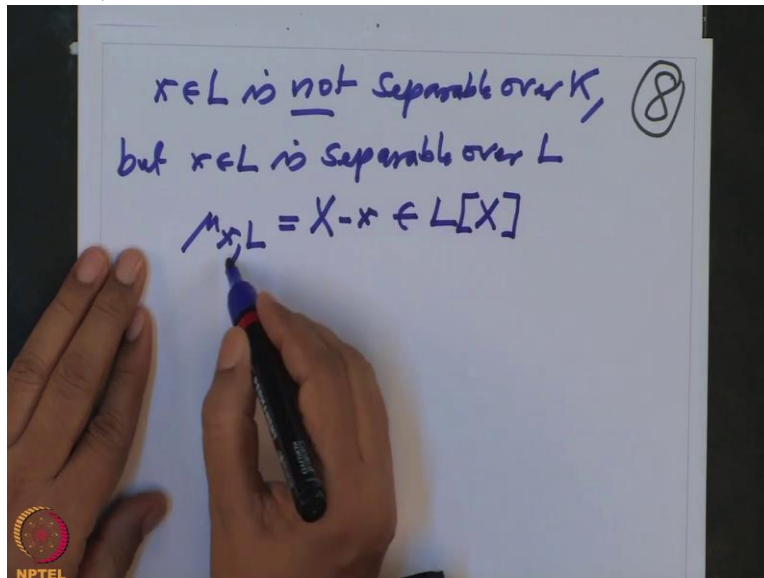 x ∈ L is not separable over K,
⑧
but x ∈ L is separable over L
μx,L = X - x ∈ L[X]
NPTEL